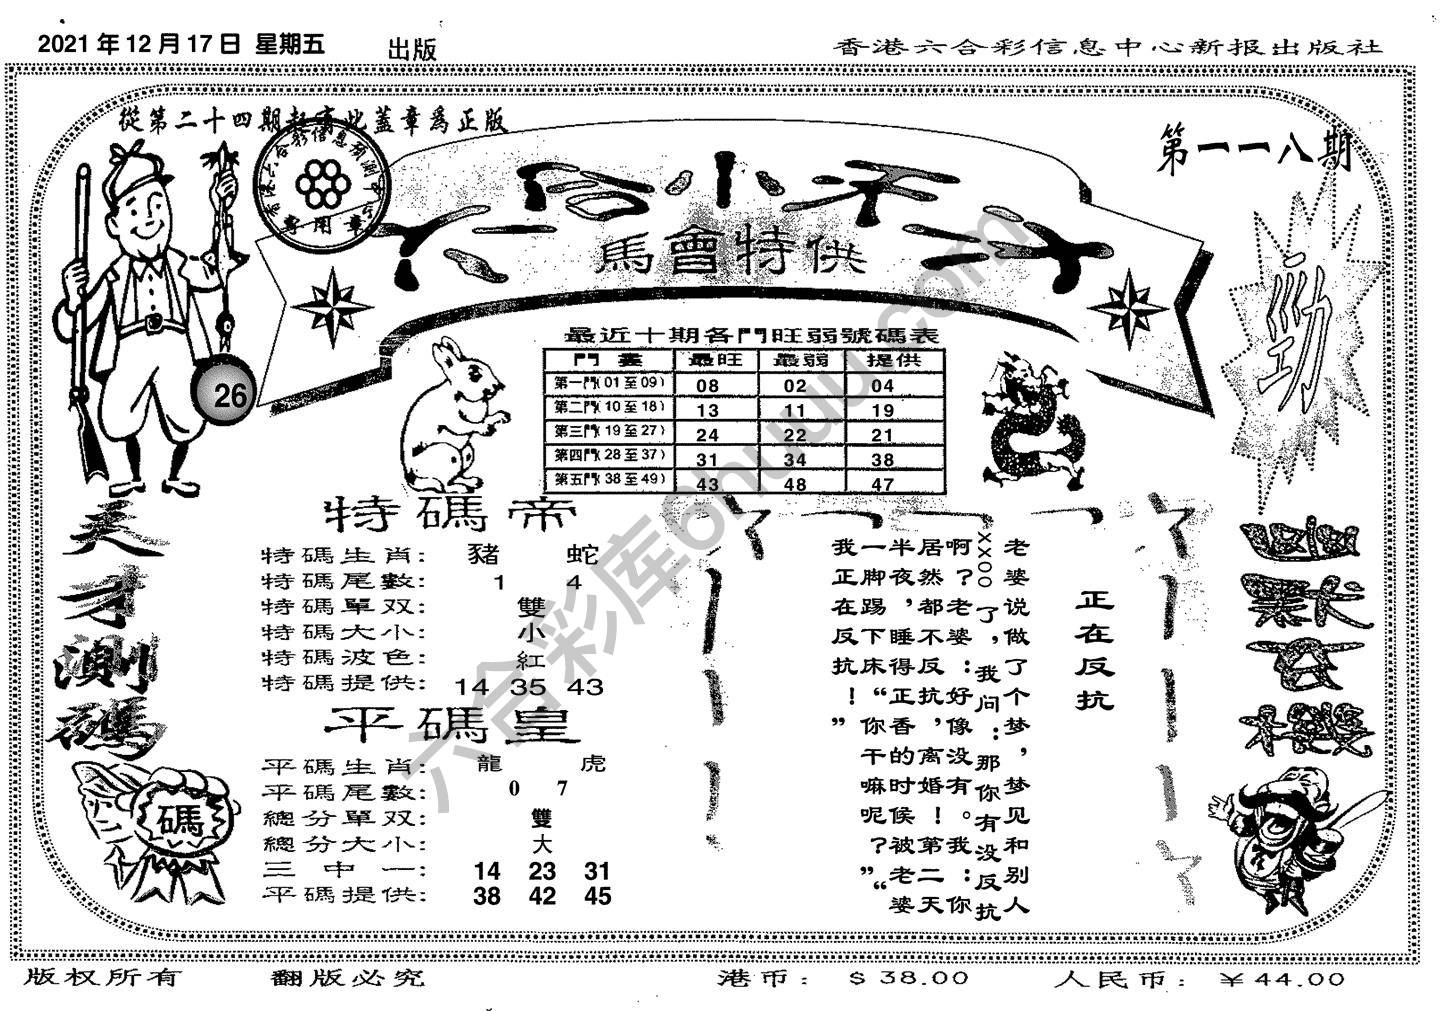 2021年12月17日 星期五 出版 香港六合彩信息中心新报出版社
從第二十四期起有此蓋章爲正版
第一一八期
六合小天才
馬會特供
專用章
勁
26
最近十期各門旺弱號碼表
門 最旺 最弱 提供
第一門(01至09) 08 02 04
第二門(10至18) 13 11 19
第三門(19至27) 24 22 21
第四門(28至37) 31 34 38
第五門(38至49) 43 48 47
天才測碼
碼
特碼帝
特碼生肖: 豬 蛇
特碼尾數: 1 4
特碼單双: 雙
特碼大小: 小
特碼波色: 紅
特碼提供: 14 35 43
平碼皇
平碼生肖: 龍 虎
平碼尾數: 0 7
總分單双: 雙
總分大小: 大
三中一: 14 23 31
平碼提供: 38 42 45
正在反抗
老婆说做了个梦,梦见和别人
xxoo了,我问:那你有没反抗
啊?老婆:好像没有。我:你
居然都不反抗,离婚!第二天
半夜,睡得正香的时候被老婆
一脚踢下床“你干嘛呢?”“
我正在反抗!”
六合彩库6huuu.com
版权所有 翻版必究 港币: $38.00 人民币: ¥44.00